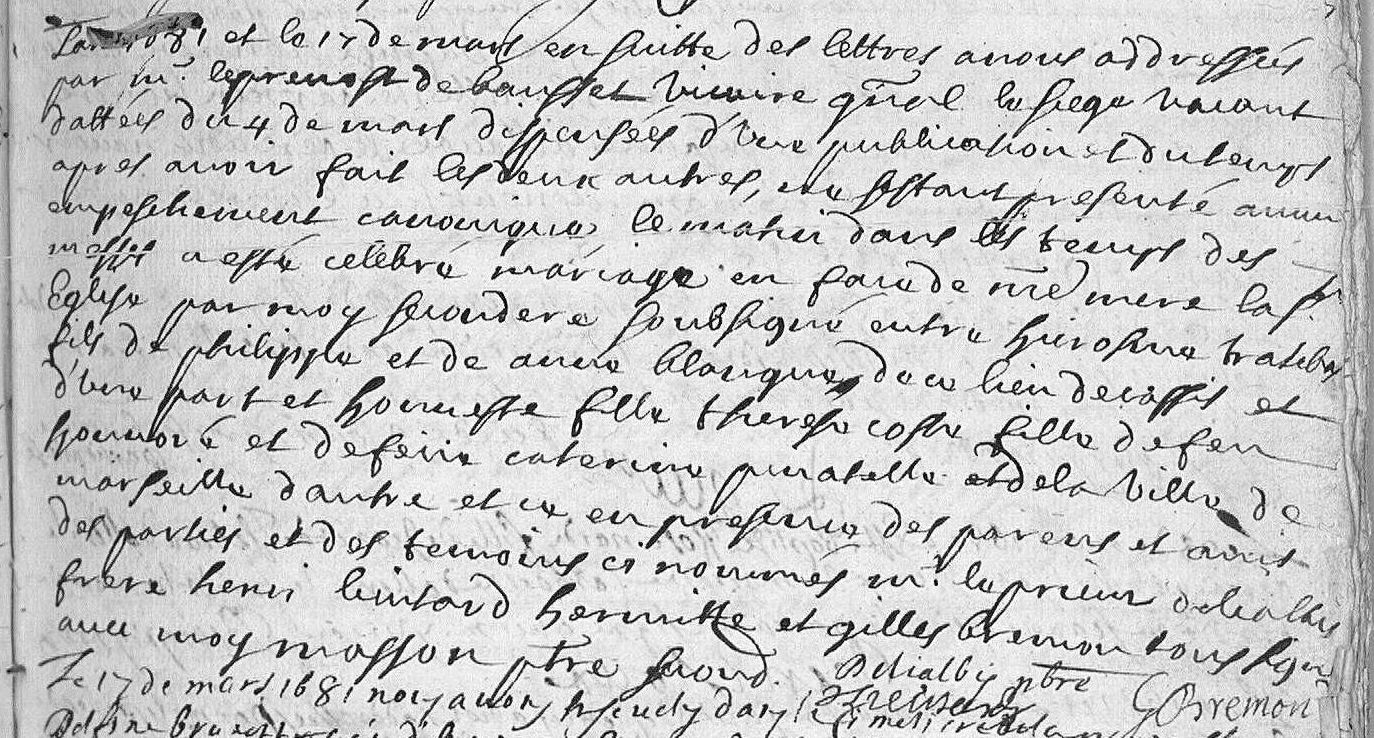 Lan 1681 et le 17 de mars en suitte des lettres a nous addressées
par mr. le prevost de bausset vicaire gñal le siege vacant
dattées du 4 de mars dispensées d'une publication et du temps
apres avoir fait les deux autres, ne sestant presenté aucun
empeschement canonique, le matin dans les temps des
messes a esté celebré mariage en face de nre mere la ste
Eglise par moy secondere soubsigné entre hierosme
fils de philippe et de anne blanque, de ce lieu de cassis et
d'une part et honneste fille therese coste fille de feu
honnoré et de feüe caterine et de la ville de
marseille d'autre et ce en presence des parens et amis
des parties et des temoins ci nommés mr. le prieur
frere henri hermitte et gilles bremon tous signés
avec moy masson ptre second. ptre G Bremon
Le 17 de mars 1681 nous avons dans le cimetiere